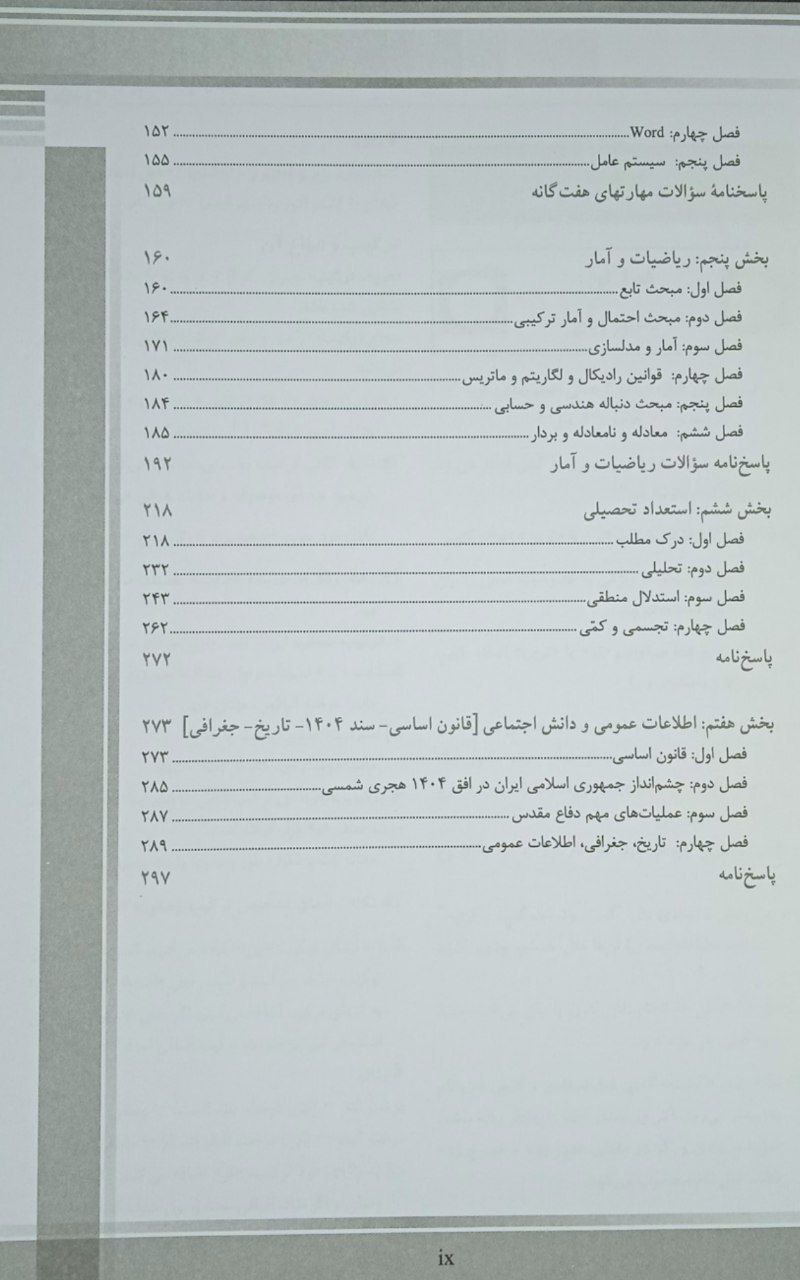 فصل چهارم: Word ........ ۱۵۲
فصل پنجم: سیستم عامل ........ ۱۵۵
پاسخنامهٔ سؤالات مهارتهای هفت‌گانه ۱۵۹
بخش پنجم: ریاضیات و آمار ۱۶۰
فصل اول: مبحث تابع ........ ۱۶۰
فصل دوم: مبحث احتمال و آمار ترکیبی ........ ۱۶۴
فصل سوم: آمار و مدلسازی ........ ۱۷۱
فصل چهارم: قوانین رادیکال و لگاریتم و ماتریس ........ ۱۸۰
فصل پنجم: مبحث دنباله هندسی و حسابی ........ ۱۸۴
فصل ششم: معادله و نامعادله و بردار ........ ۱۸۵
پاسخ‌نامه سؤالات ریاضیات و آمار ۱۹۲
بخش ششم: استعداد تحصیلی ۲۱۸
فصل اول: درک مطلب ........ ۲۱۸
فصل دوم: تحلیلی ........ ۲۳۲
فصل سوم: استدلال منطقی ........ ۲۴۳
فصل چهارم: تجسمی و کمّی ........ ۲۶۲
پاسخ‌نامه ۲۷۲
بخش هفتم: اطلاعات عمومی و دانش اجتماعی [قانون اساسی- سند ۱۴۰۴- تاریخ- جغرافی] ۲۷۳
فصل اول: قانون اساسی ........ ۲۷۳
فصل دوم: چشم‌انداز جمهوری اسلامی ایران در افق ۱۴۰۴ هجری شمسی ........ ۲۸۵
فصل سوم: عملیات‌های مهم دفاع مقدس ........ ۲۸۷
فصل چهارم: تاریخ، جغرافی، اطلاعات عمومی ........ ۲۸۹
پاسخ‌نامه ۲۹۷
ix